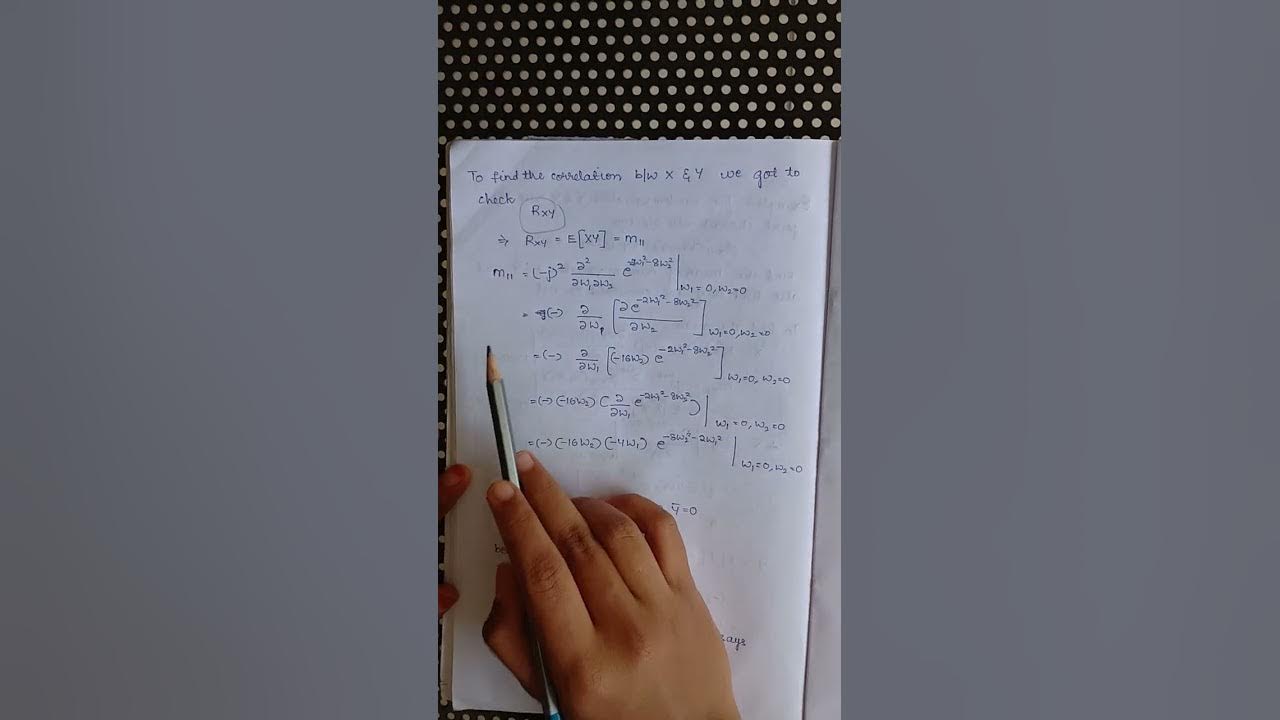 To find the correlation b/w X & Y we got to
check Rxy
⇒ Rxy = E[XY] = m₁₁
m₁₁ = (-j)² ∂²/∂w₁∂w₂ e^(-2w₁²-8w₂²) | w₁=0, w₂=0
= (-) ∂/∂w₁ [∂e^(-2w₁²-8w₂²)/∂w₂] w₁=0, w₂=0
= (-) ∂/∂w₁ [(-16w₂) e^(-2w₁²-8w₂²)] w₁=0, w₂=0
= (-) (-16w₂) (∂/∂w₁ e^(-2w₁²-8w₂²)) | w₁=0, w₂=0
= (-) (-16w₂) (-4w₁) e^(-8w₂²-2w₁²) | w₁=0, w₂=0
Ȳ=0
be